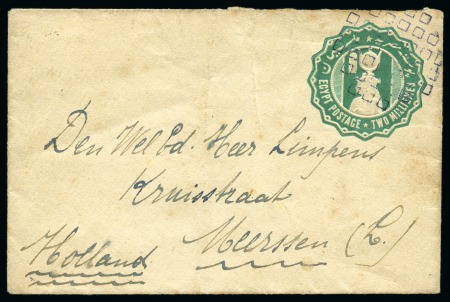 EGYPT POSTAGE ★ TWO MILLIEMES
Den Wel Ed. Heer Limpens
Kruisstraat
Meerssen (L.)
Holland